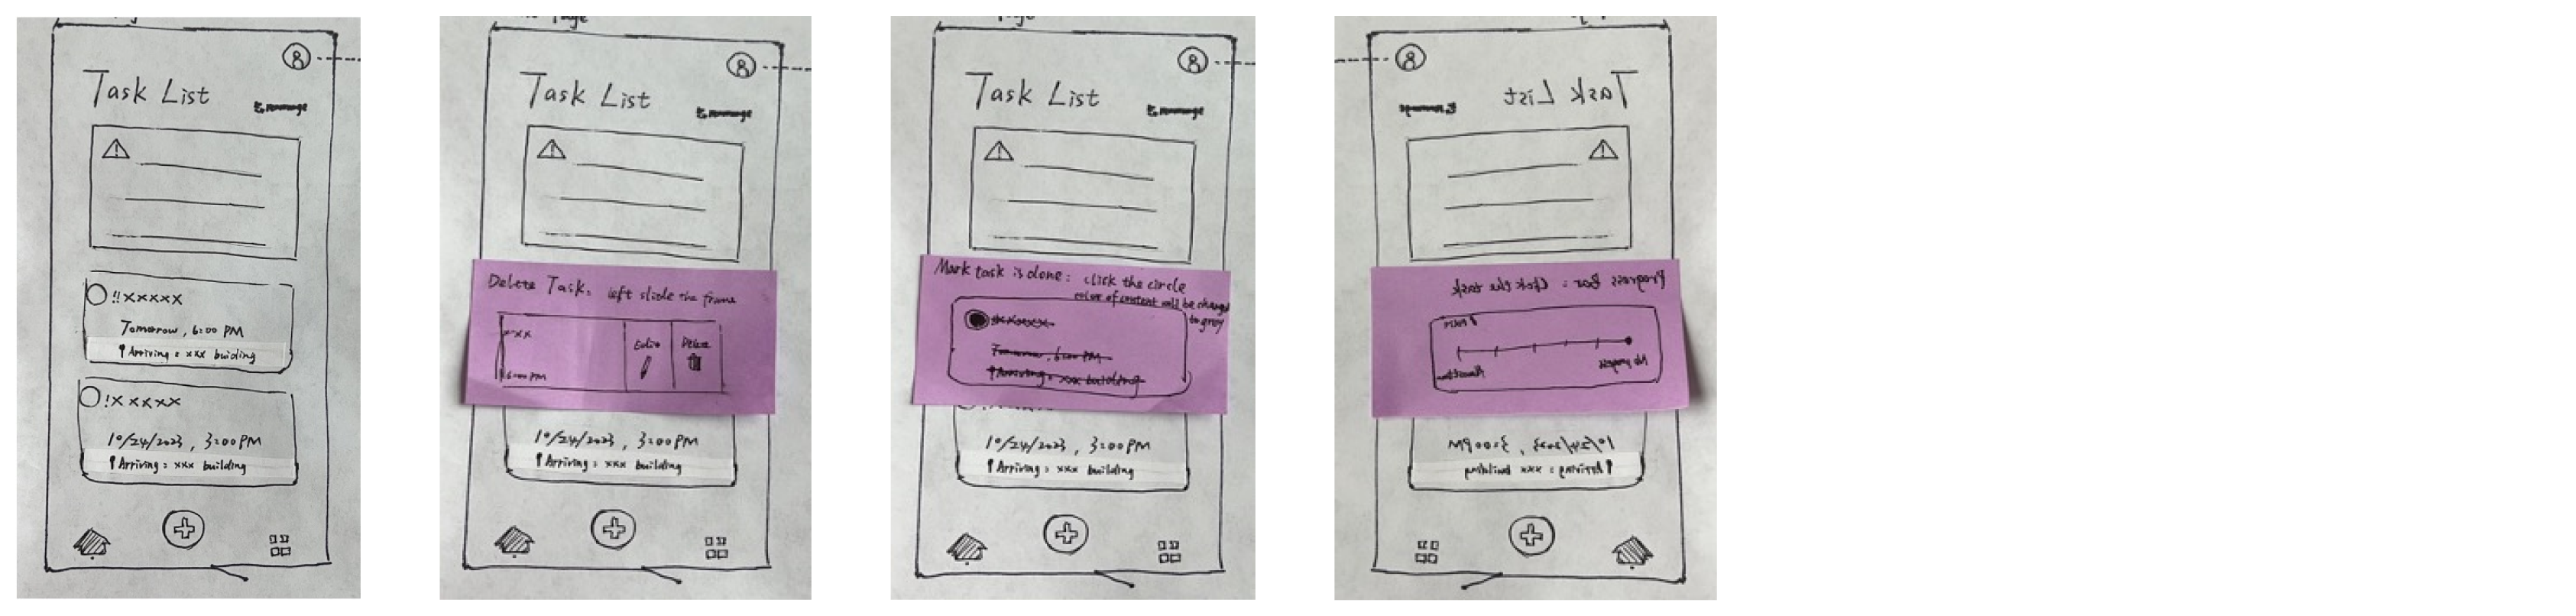 Task List
!!xxxxx
Tomorrow, 6:00 PM
Arriving: xxx buiding
!xxxxx
10/24/2023, 3:00PM
Arriving: xxx building
Page
Task List
Delete Task: left slide the frame
xxx
Delete
6:00 PM
10/24/2023, 3:00PM
Arriving: xxx building
Page
Task List
Mark task is done: click the circle
color of content will be changed
to grey
xxxxx
Tomorrow, 6:00 PM
Arriving: xxx building
10/24/2023, 3:00PM
Arriving: xxx building
Task List
Progress Bar: Click the task
No progress
10/24/2023, 3:00PM
Arriving: xxx building